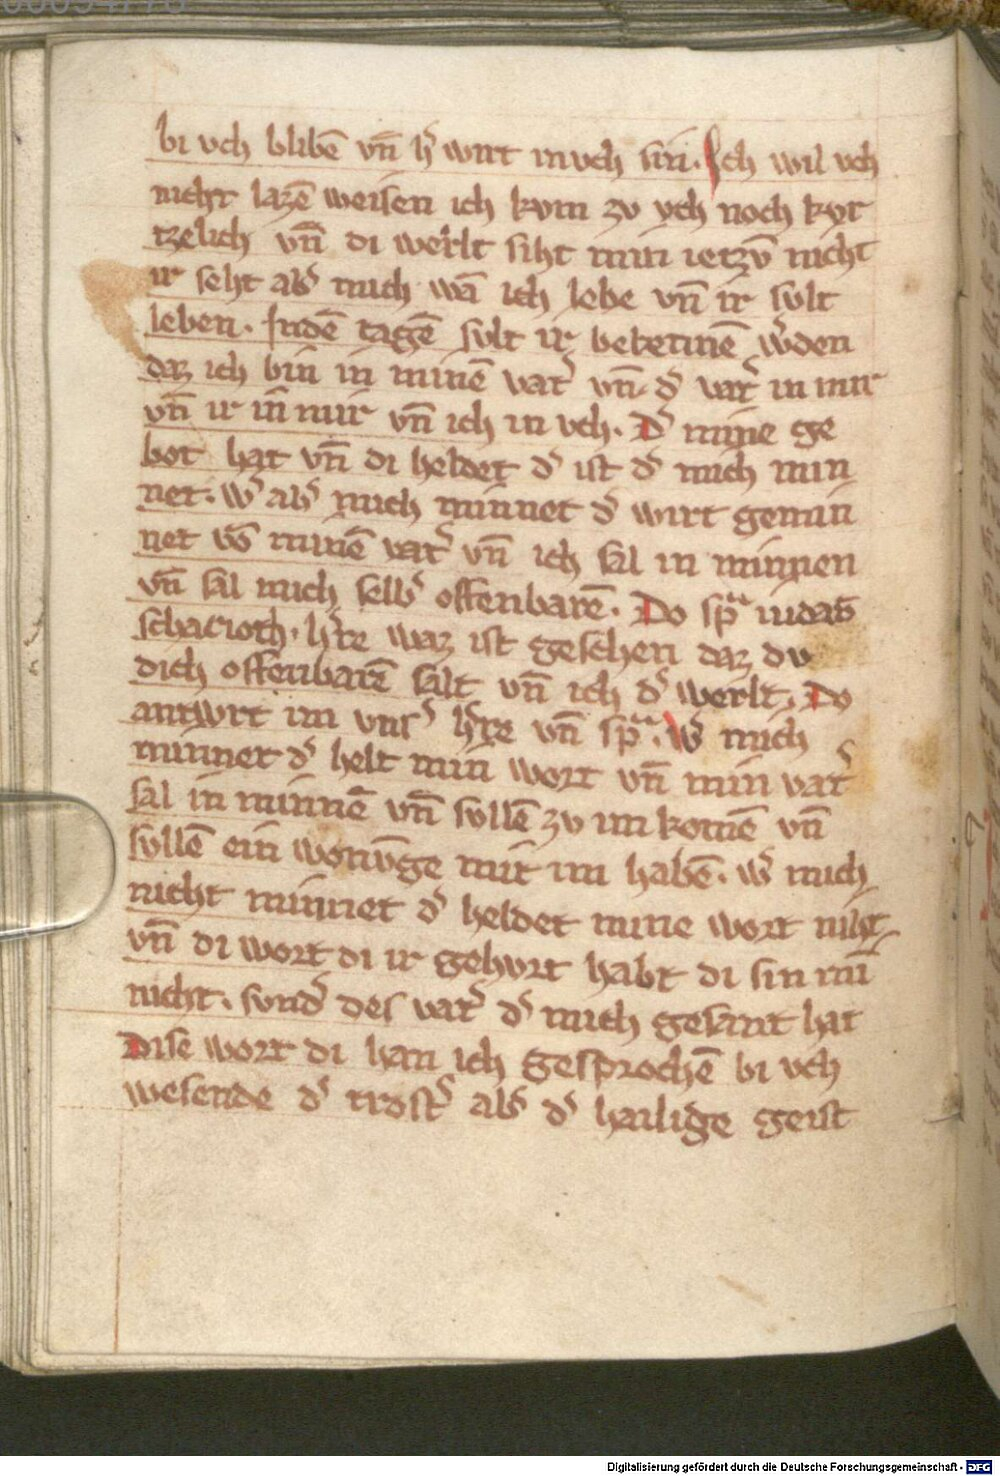 bi vch blibē vn̄ h' wirt in vch sin. Ich wil vch
nicht lazē weisen ich kvm zv vch noch kvr
tzelich vn̄ di werlt siht min ietzv̄ nicht
ir seht ab' mich wā ich lebe vn̄ ir svlt
leben. Indē tagē svlt ir bekennē w'den
daz ich bin in minē vat' vn̄ d' vat' in mir
vn̄ ir in mir vn̄ ich in vch. D' mine ge
bot hat vn̄ di heldet d' ist d' mich min
net. w' ab' mich minnet d' wirt gemin
net vō minē vat' vn̄ ich sal in minnen
vn̄ sal mich selb' offenbarē. Do spᵃ iudas
scharioth. h're waz ist geschen daz dv
dich offenbarē salt vn̄ ich d' werlt. Do
antwrt im vns' h're vn̄ spᵃ. W' mich
minnet d' helt min wort vn̄ min vat'
sal in minnē vn̄ svllē zv im komē vn̄
svllē ein wonv̄ge mit im habē. w' mich
nicht minnet d' heldet mine wort niht
vn̄ di wort di ir gehvrt habt di sin mī
nicht. svnd' des vat' d' mich gesant hat
Dise wort di han ich gesprochē bi vch
wesende d' trost' ab' d' hailige geist
Digitalisierung gefördert durch die Deutsche Forschungsgemeinschaft - DFG